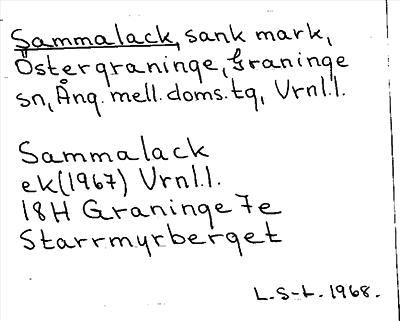 Sammalack, sank mark,
Östergraninge, Graninge
sn, Ång. mell. doms. tg, Vrnl.l.
Sammalack
ek(1967) Vrnl.l.
18H Graninge 7e
Starrmyrberget
L.S-L. 1968.